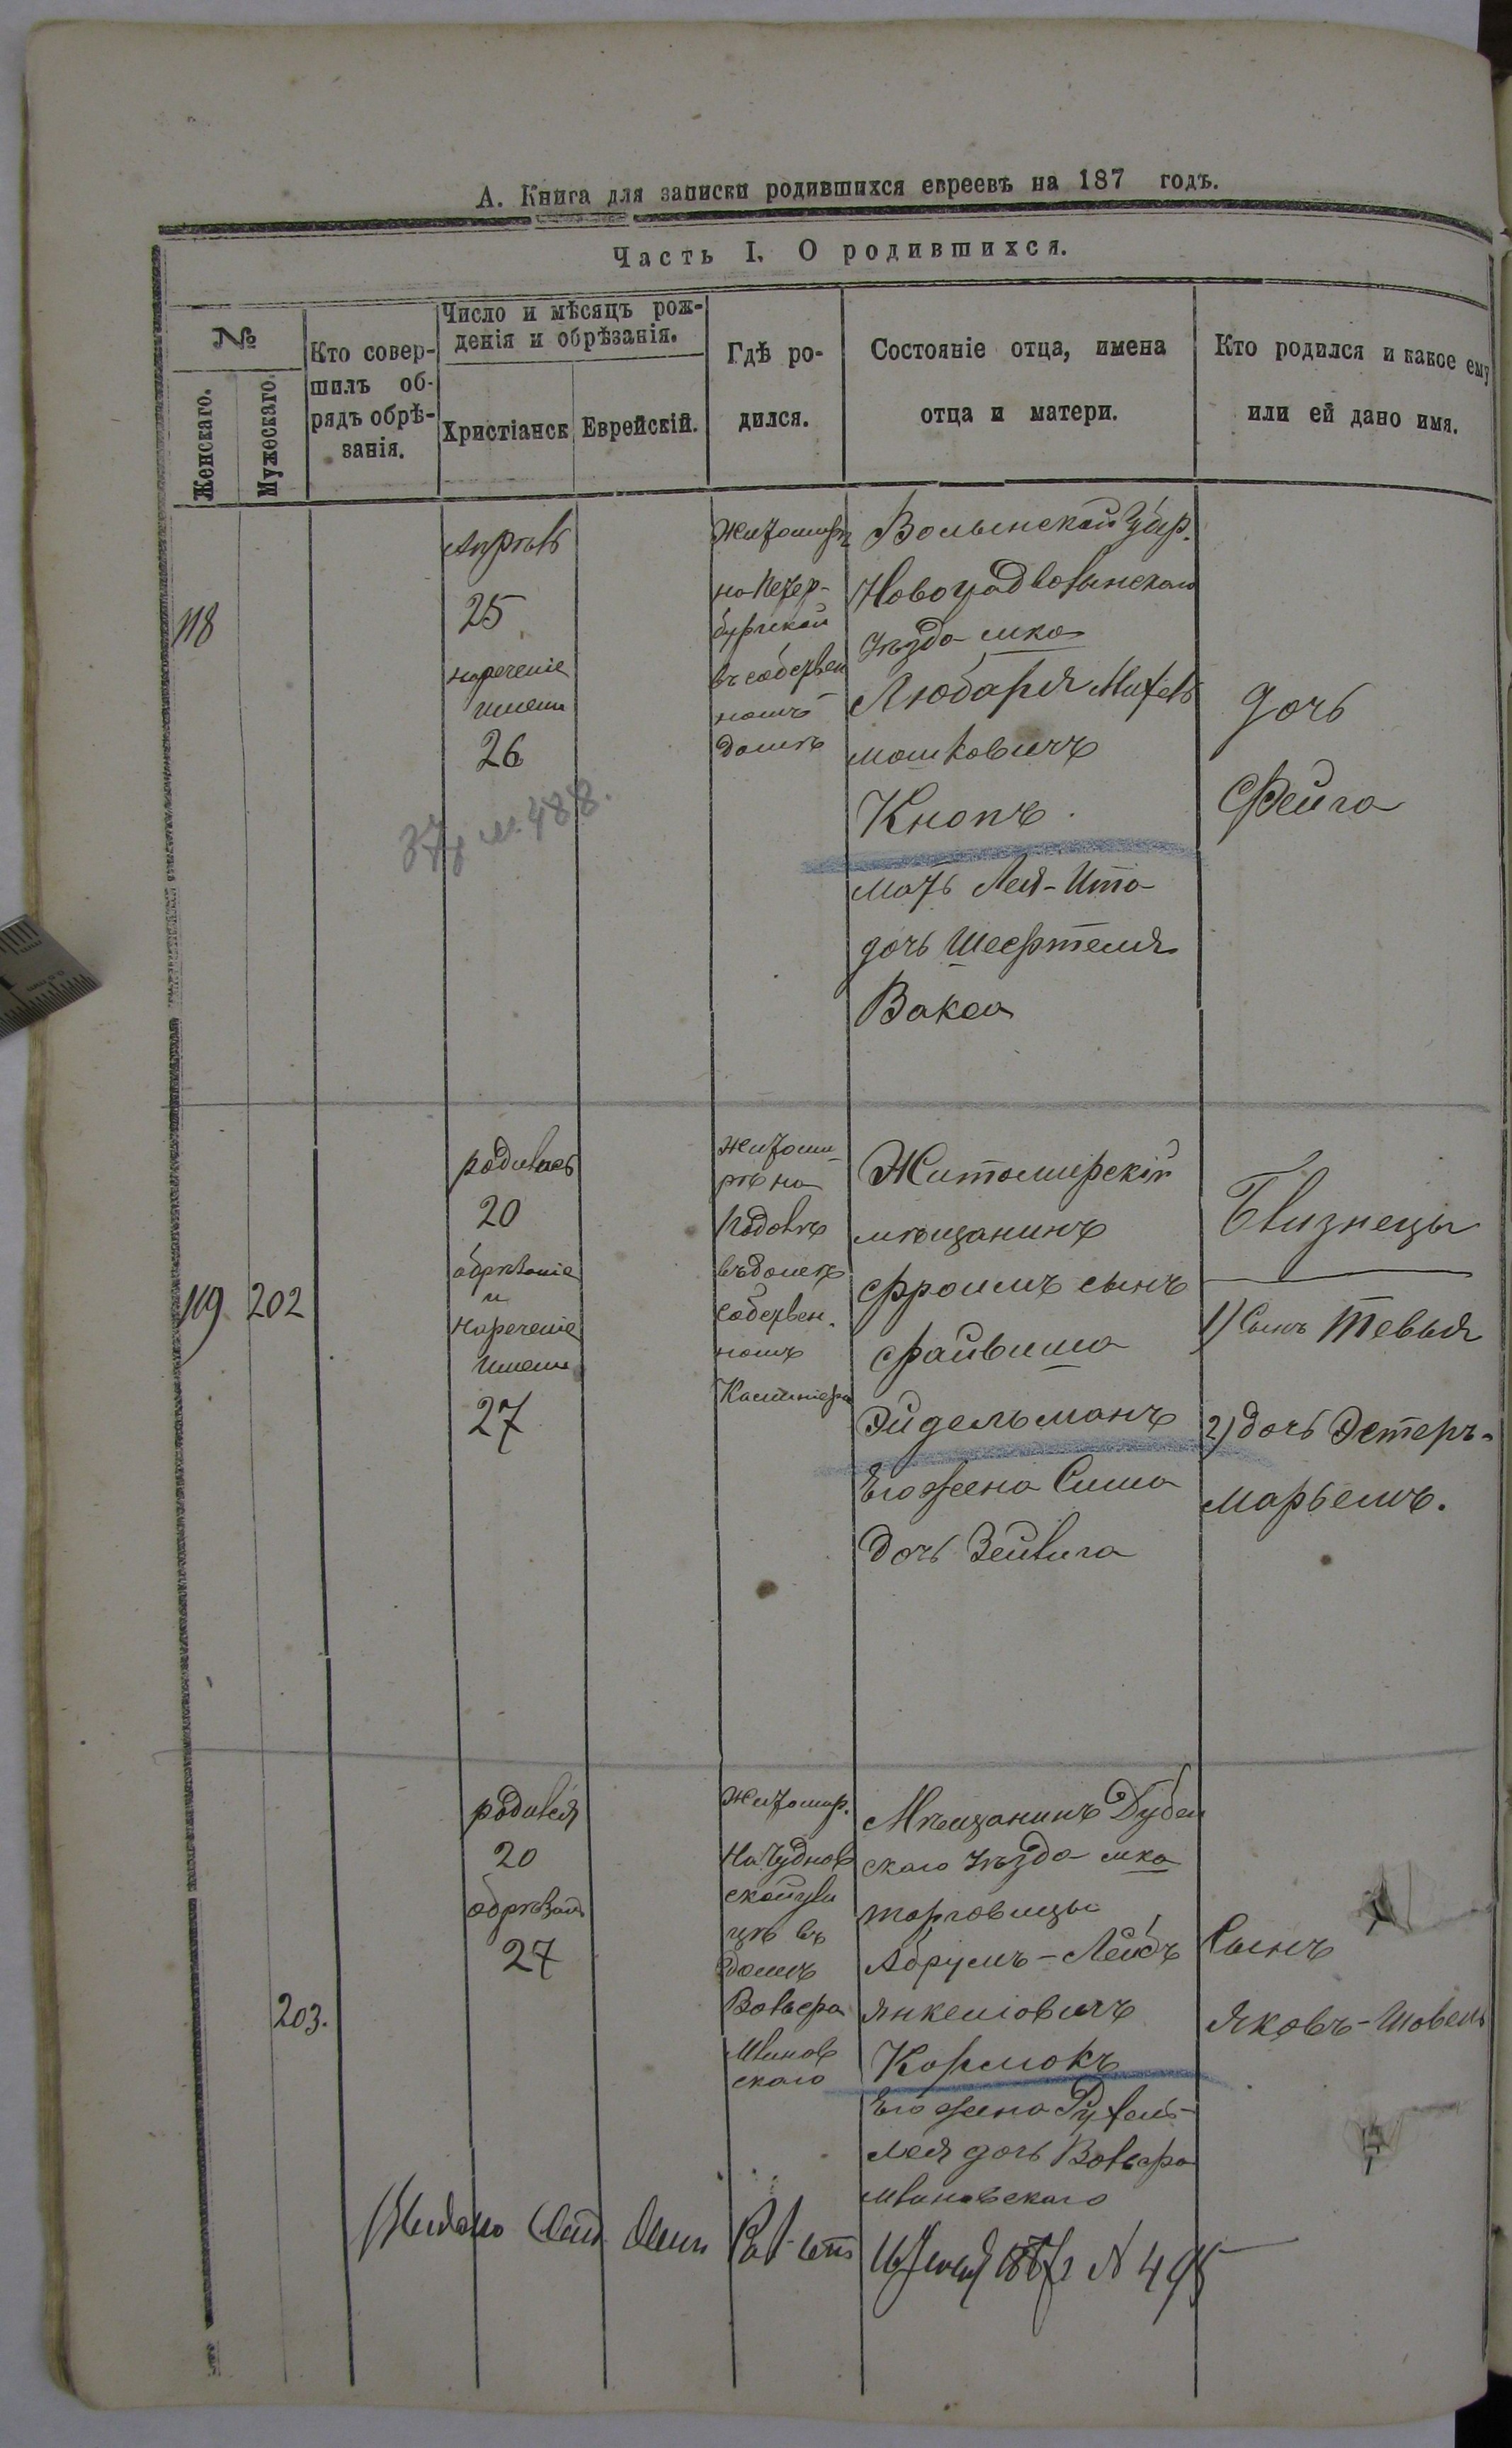 А. Книга для записки родившихся евреевъ на 187 годъ.
Часть I. О родившихся.
№
Женскаго.
Мужескаго.
Кто совер-
шилъ об-
рядъ обрѣ-
занія.
Число и мѣсяцъ рож-
денія и обрѣзанія.
Христіанск
Еврейскій.
Гдѣ ро-
дился.
Состояніе отца, имена
отца и матери.
Кто родился и какое ему
или ей дано имя.
118
Апрѣль
25
нареченіе
имени
26
Житомирѣ
на Петер-
бургской
въ собствен
номъ
домѣ
Волынской Губ.
Новоградволынскаго
Уѣзда мка
Любаря
мошковичъ
Кнопъ.
мать Лея-Ита
дочь Шефтеля
Вакса
Дочь
Фейга
488.
119
202
родилась
20
обрѣзаніе
и
нареченіе
имени
27
Житоми-
рѣ на
Подолѣ
въ домѣ
собствен-
номъ
Житомирскій
мѣщанинъ
Фроимъ сынъ
Файвиша
Эйдельманъ
Его жена Сима
дочь Зейлига
Близнецы
1) Сынъ Тевья
2) дочь Эстеръ-
Марьемъ.
203.
родился
20
обрѣзан
27
Житомир.
На Чуднов
ской ули
цѣ въ
домѣ
Вольера
Мѣщанинъ Дубен
скаго Уѣзда мка
торговицы
Абрумъ-Лейбъ
Янкелювичъ
Кормокъ
Его жена Рухель-
лея дочь
Сынъ
Яковъ-Шовель
Выдано
№ 495